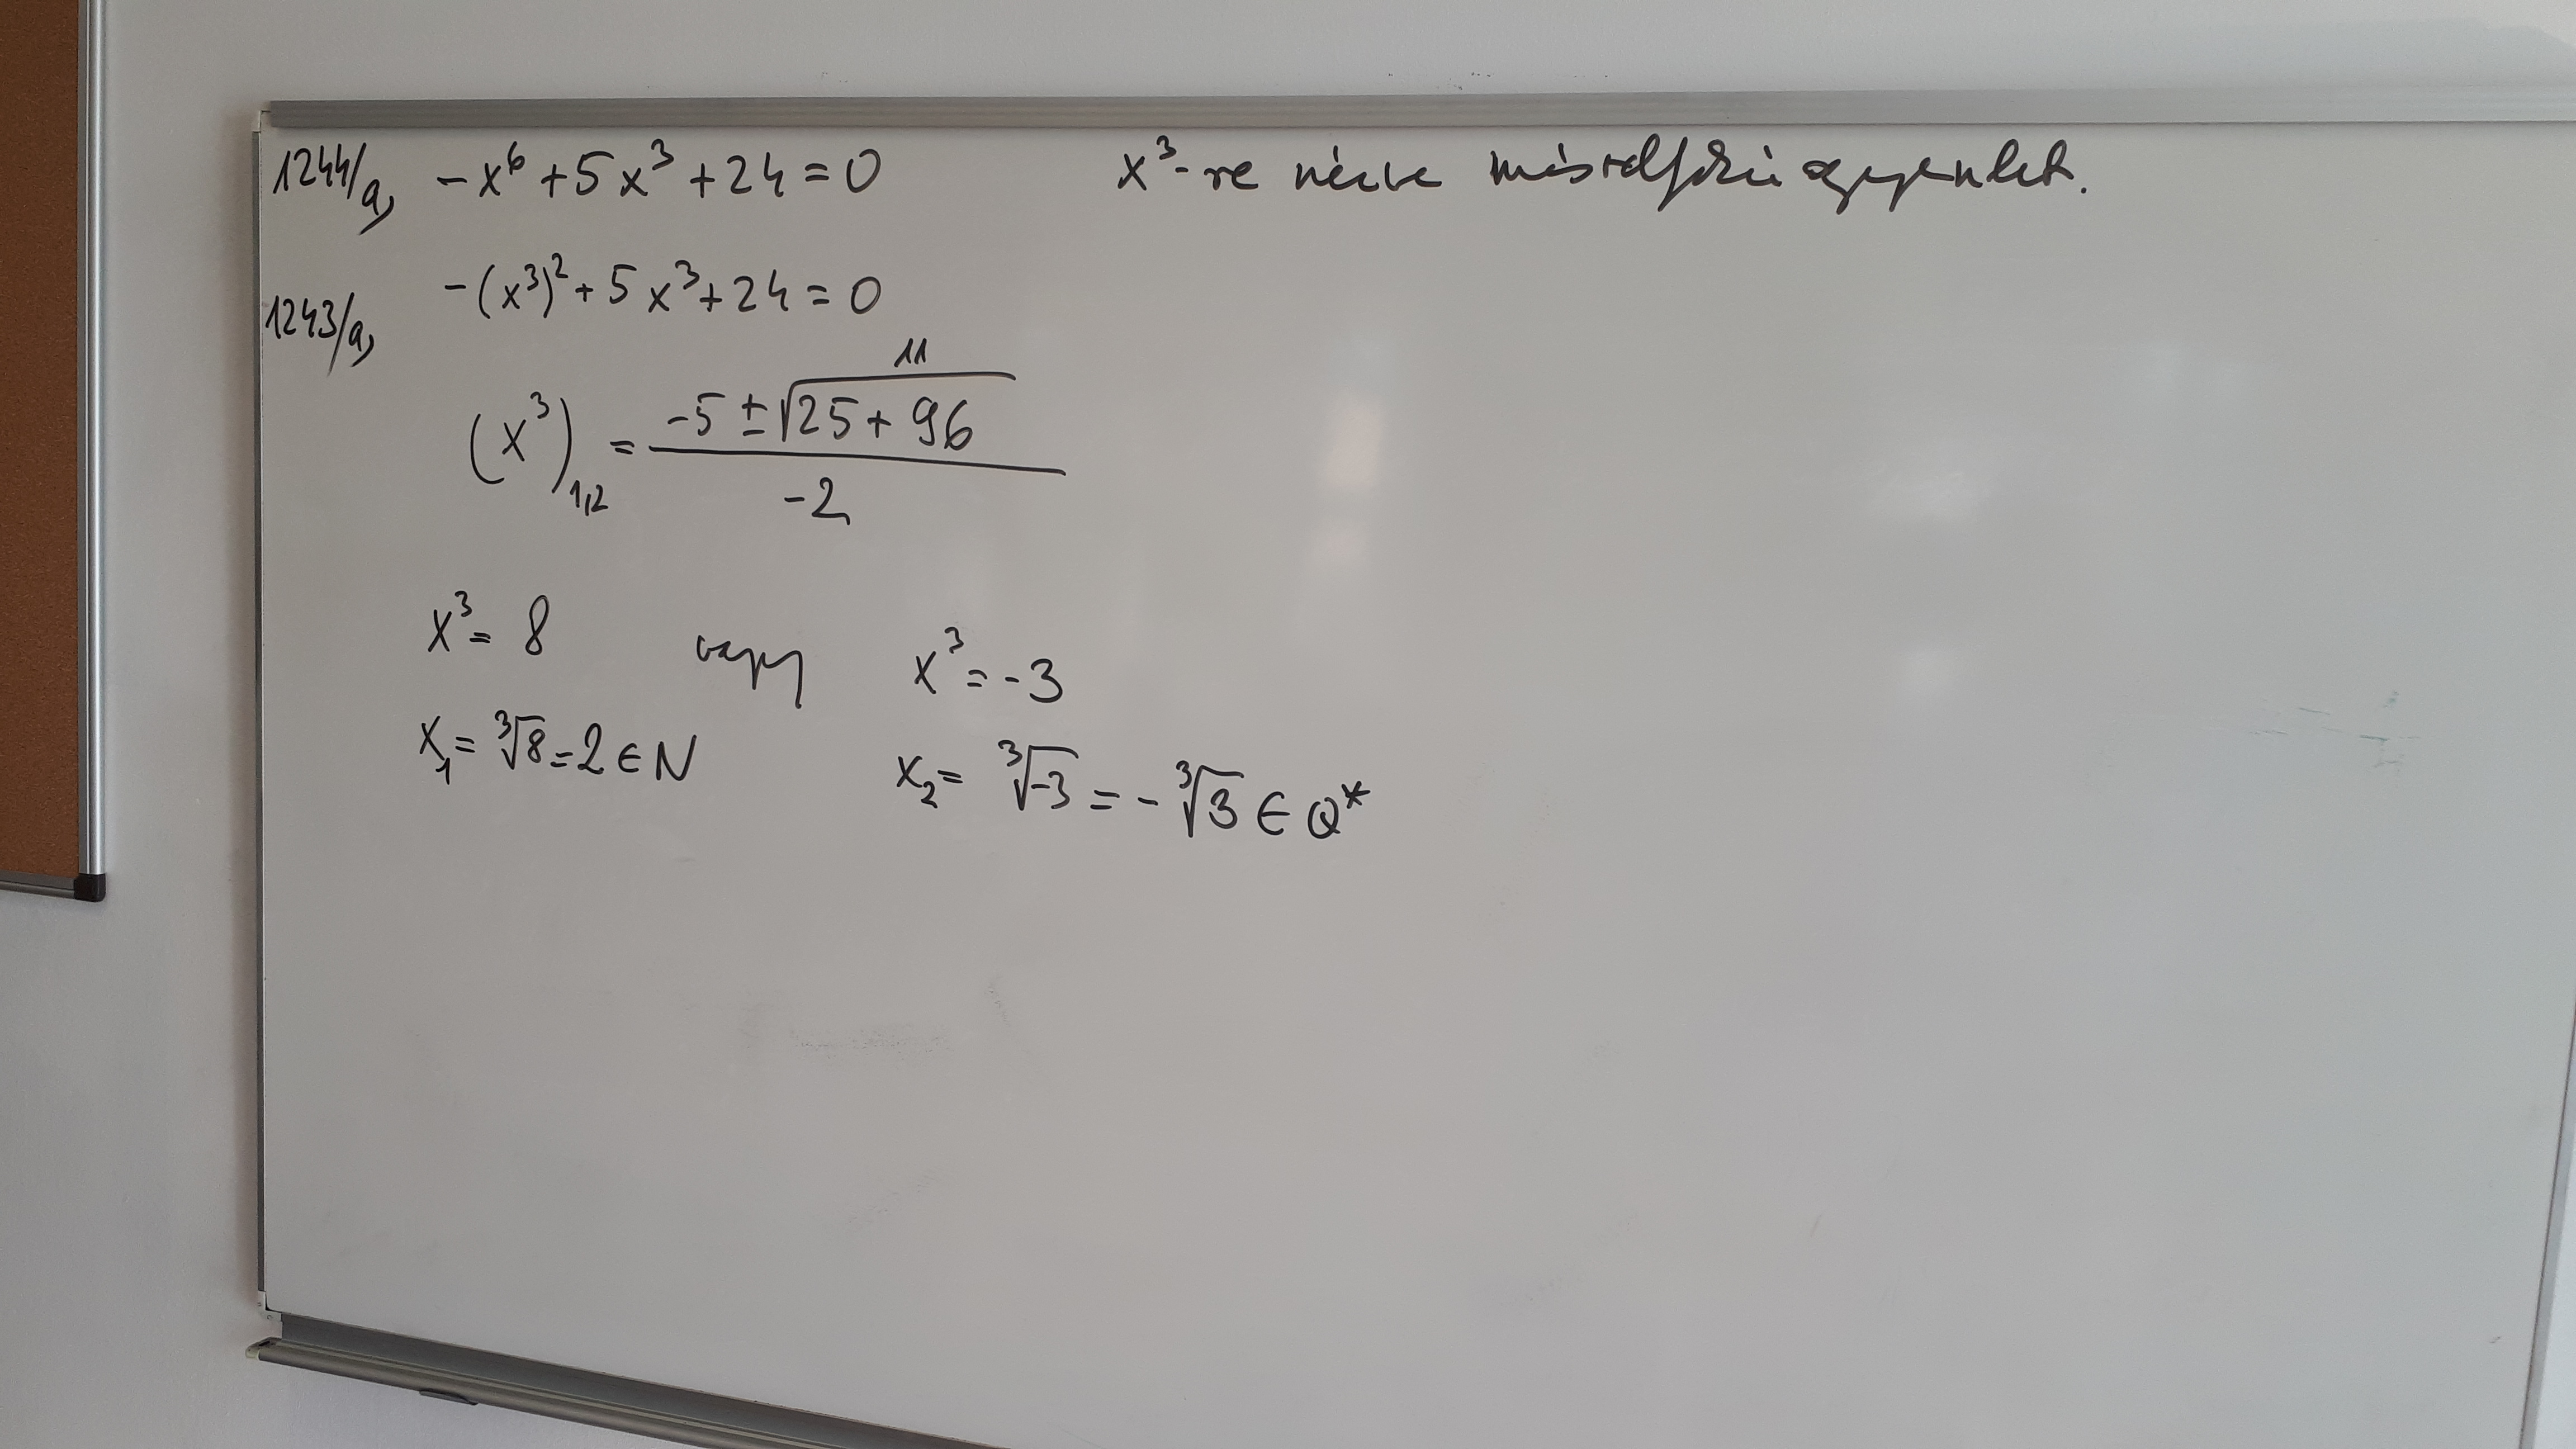 1244/a, -x⁶ + 5x³ + 24 = 0 x³-re nézve másodfokú egyenlet.
-(x³)² + 5x³ + 24 = 0
1243/a,
11
(x³)₁,₂ = (-5 ± √(25 + 96)) / -2
x³ = 8 vagy x³ = -3
x₁ = ∛8 = 2 ∈ N x₂ = ∛-3 = -∛3 ∈ Q*